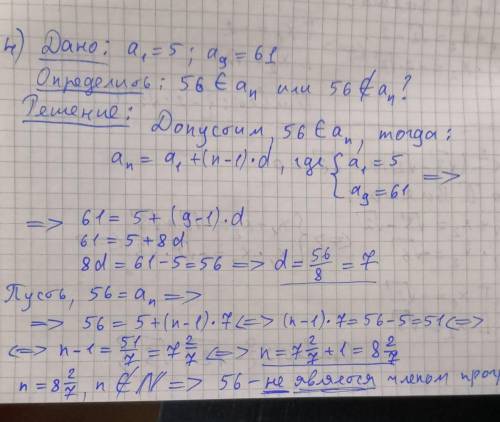 4) Дано: a₁ = 5; a₉ = 61
Определить: 56 ∈ aₙ или 56 ∉ aₙ?
Решение: Допустим, 56 ∈ aₙ, тогда:
aₙ = a₁ + (n-1)·d, где { a₁ = 5
a₉ = 61 =>
=> 61 = 5 + (9-1)·d
61 = 5 + 8d
8d = 61 - 5 = 56 => d = 56/8 = 7
Пусть, 56 = aₙ =>
=> 56 = 5 + (n-1)·7 <=> (n-1)·7 = 56 - 5 = 51 <=>
<=> n-1 = 51/7 = 7 2/7 <=> n = 7 2/7 + 1 = 8 2/7
n = 8 2/7, n ∉ N => 56 - не является членом прог